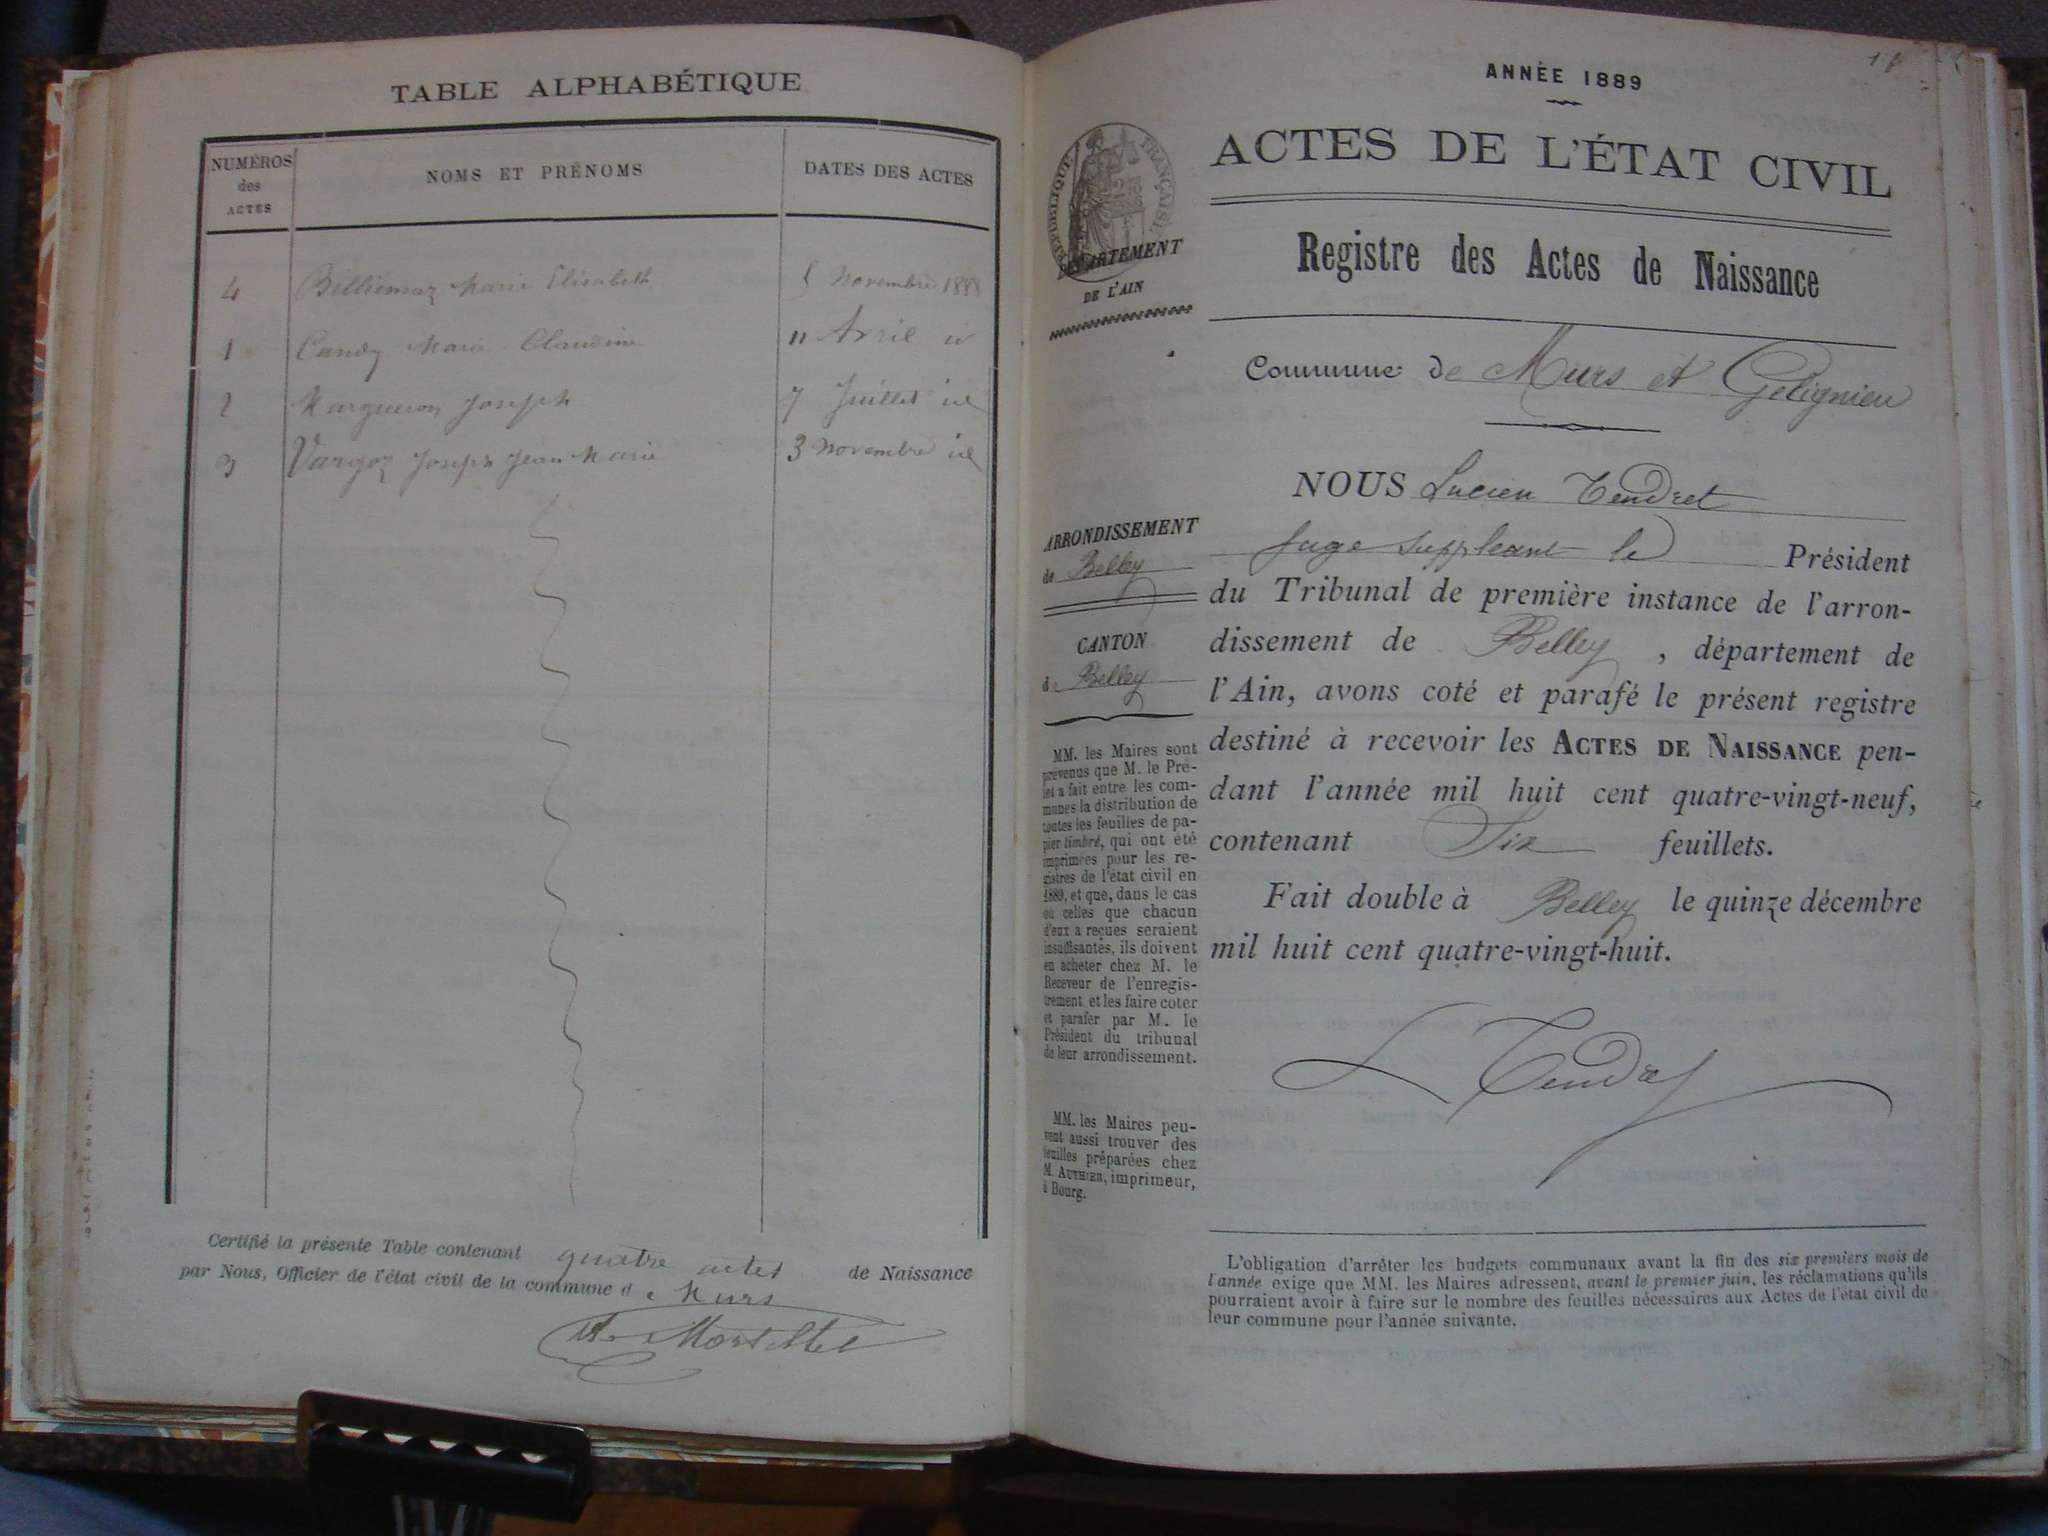 TABLE ALPHABÉTIQUE
NUMÉROS
des
ACTES
NOMS ET PRÉNOMS
DATES DES ACTES
4 Billiemaz Marie Elisabeth 5 Novembre 1888
1 Candy Marie Claudine 11 Avril id
2 Margueron Joseph 7 Juillet id
3 Vargoz Joseph Jean Marie 3 Novembre id
Certifié la présente Table contenant quatre actes de Naissance
par Nous, Officier de l'état civil de la commune de Murs
ANNÉE 1889
RÉPUBLIQUE FRANÇAISE
ACTES DE L'ÉTAT CIVIL
DÉPARTEMENT
DE L'AIN
Registre des Actes de Naissance
Commune de Murs et Gélignieu
NOUS Lucien Tendret
Juge suppléant le Président
du Tribunal de première instance de l'arron-
dissement de Belley, département de
l'Ain, avons coté et parafé le présent registre
destiné à recevoir les ACTES DE NAISSANCE pen-
dant l'année mil huit cent quatre-vingt-neuf,
contenant Six feuillets.
Fait double à Belley le quinze décembre
mil huit cent quatre-vingt-huit.
L Tendret
ARRONDISSEMENT
de Belley
CANTON
de Belley
MM. les Maires sont
prévenus que M. le Pré-
fet a fait entre les com-
munes la distribution de
toutes les feuilles de pa-
pier timbré, qui ont été
imprimées pour les re-
gistres de l'état civil en
1889, et que, dans le cas
où celles que chacun
d'eux a reçues seraient
insuffisantes, ils doivent
en acheter chez M. le
Receveur de l'enregis-
trement et les faire coter
et parafer par M. le
Président du tribunal
de leur arrondissement.
MM. les Maires peu-
vent aussi trouver des
feuilles préparées chez
M. AUTHIER, imprimeur,
à Bourg.
L'obligation d'arrêter les budgets communaux avant la fin des six premiers mois de
l'année exige que MM. les Maires adressent, avant le premier juin, les réclamations qu'ils
pourraient avoir à faire sur le nombre des feuilles nécessaires aux Actes de l'état civil de
leur commune pour l'année suivante.